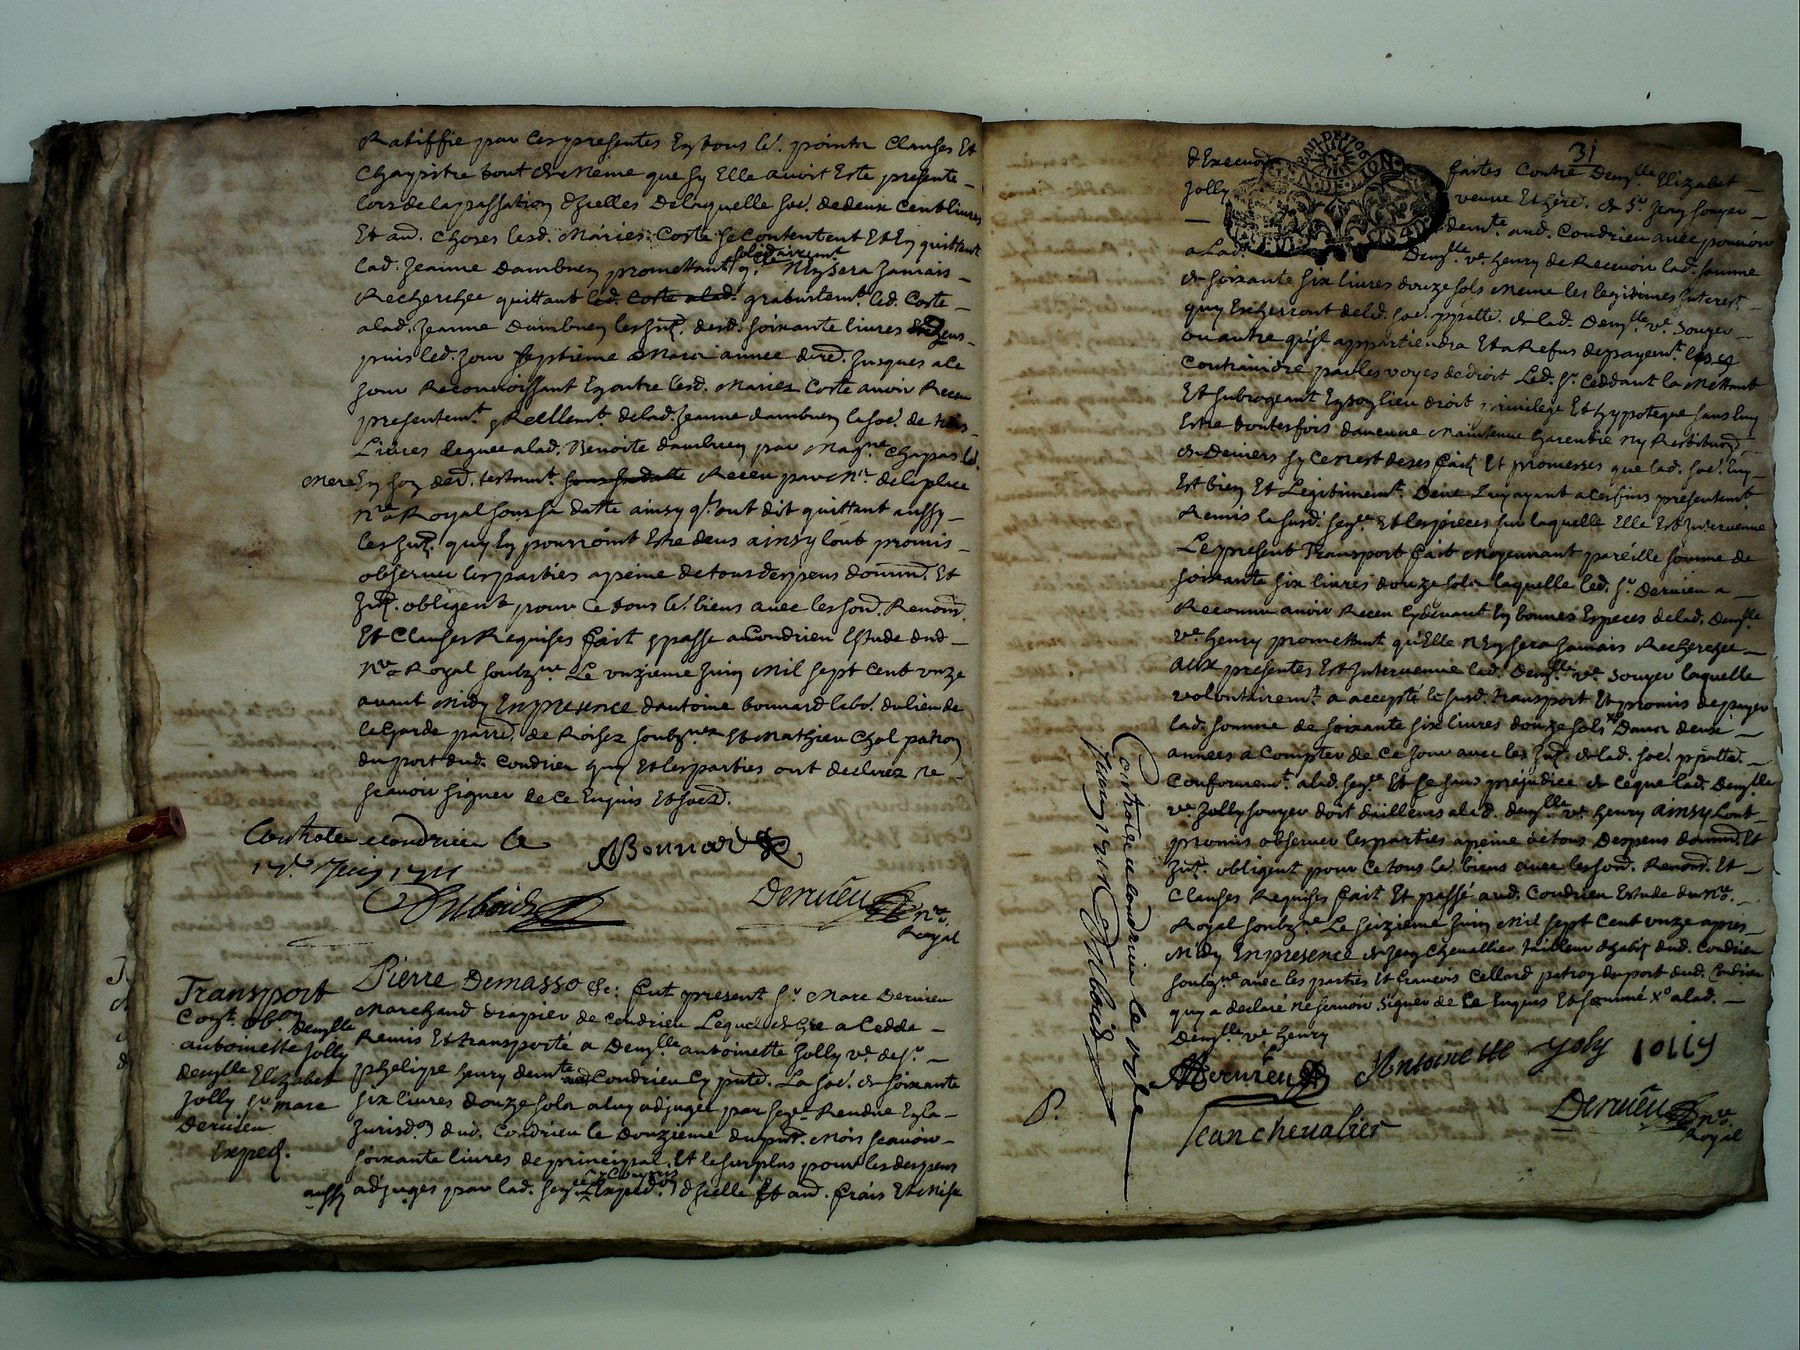 Ratiffie par ces presentes En tous les pointz Clauses Et
Chapistre tout de Meme que sy Elle avoit Este presente
lors de la passation d'jcelles De laquelle soe. de deux cent livres
Et aud. Choses lesd. Mariez Coste se Contentent Et En quittent
solidairemt.
lad. Jeanne Dambuen promettant q. N'y sera Jamais
Recherchée quittant led. Coste a lad. gratuitemt. led. Coste
a lad. Jeanne Dambuen les jnt. desd. soixante livres
puis led. Jour septième Mars annee dered. Jusques a ce
Jour Reconnoissant En outre lesd. Mariez Coste avoir Receu
presentemt. Reellemt. de lad. Jeanne dambuen la soe. de trois
Livres leguée a lad. Benoite dambuen par Chapas
mere En son der. testamt. Receu par Me. delaplace
Nre Royal sous sa datte ainsy q. ont dit quittant aussy
les jnt. quy En pourroint Estre deus ainsy l'ont promis
observer les parties a peine de tous despens domm. Et
jnt. obligent pour ce tous les biens avec les soud. Renond.
Et Clauses Requises fait & passé a Condrieu Estude dud.
Nre Royal soubz.ne Le unzieme Juin Mil sept Cent unze
avant Midy En presence d'antoine bonnard labo. du lieu de
le Garde parre. de Roisez soubz.ne Et Mathieu Chol patron
du port dud. Condrieu quy Et les parties ont declarez ne
scavoir signer de ce Enquis Et soed.
Controllé a Condrieu le
Juin 1711
ABonnard
Dubois
Dervieu
nre.
Royal
Transport
demlle
antoinette Jolly
demlle Elizabet
Jolly sr. marc
Dervieu
Exped.
Pierre Demasso &c: fut present sr. Marc Dervieu
Marchand drapier de Condrieu Lequel de gre a Cedde
Remis Et transporté a Demlle antoinette Jolly ve. de sr.
phelipe henry demte. aud. Condrieu Cy pnte. La soe. de soixante
six livres douze solz a luy adjugee par sen.ce Rendue En la
Jurisd.on dud. Condrieu le Douzième du pnt. Mois scavoir
soixante livres de principal, Et le surplus pour les despens
y Compris
aussy adjuges par lad. sen.ce l'Exped.on d'jcelle Et aud. frais Et Mise
31
d'Execuon
faites Contre Demlle Elizabet
Jolly
veuve Et here. de sr. Jean souyer
demte. aud. Condrieu avec pouvoir
a Lad. Demlle ve. henry de Recevoir lad. somme
de soixante six livres douze sols Meme les legitimes Interest
quy Escherront de lad. soe. ppalle. de lad. Demlle ve. Souyer
ou autre qu'il appartiendra Et a Refus de payemt. les Y
Contraindre par les voyes de droit Led. sr. Ceddant la Mettant
Et subrogeant En son lieu droit privilege Et hypoteque sans luy
Estre toutesfois d'aucune Maintenue Garentie ny Restitu.on
de Deniers sy Ce n'est de ses faitz Et promesses que lad. soe. luy
Est bien Et Legitimemt. Deue Luy ayant a ces fins presentemt.
Remis la susd. sen.ce Et les pieces sur laquelle Elle Est Intervenue
Le present Transport fait Moyennant pareille somme de
soixante six livres douze solz laquelle led. sr. Dervieu a
Reconnu avoir Receu Cydevant En bonnes Especes de lad. Demlle
ve. henry promettant qu'Elle N'y sera Jamais Recherchee
aux presentes Est Intervenue lad. Demlle ve. Souyer laquelle
volontairemt. a accepté le susd. transport Et promis de payer
lad. somme de soixante six livres douze sols Dans deux
années a Compter de Ce Jour avec les jnt. de lad. soe. ppalle.
Conformemt. a lad. sen.ce Et se sans prejudice de Ceque lad. Demlle
ve. Jolly souyer doit d'ailleurs a lad. demlle ve. henry ainsy L'ont
promis observer les parties a peine de tous Despens domm. Et
jnt. obligent pour Ce tous les biens avec les soud. Renond. Et
Clauses Requises fait Et passé aud. Condrieu Estude du Nre.
Royal soubz.ne Le seizieme Juin Mil sept Cent unze apres
Midy En presence de Jean Chevallier tailleur d'habis dud. Condrieu
soubz.ne avec les parties Et francois Cellard patron du port dud. Condrieu
quy a declaré ne scavoir signer de Ce Enquis Et sommé a lad.
Demlle ve. henry
MDervieu
Antoinette Joly
Jolly
Jean chevalier
Dervieu
nre.
Royal
Controllé a Condrieu le
Juin 1711 Dubois